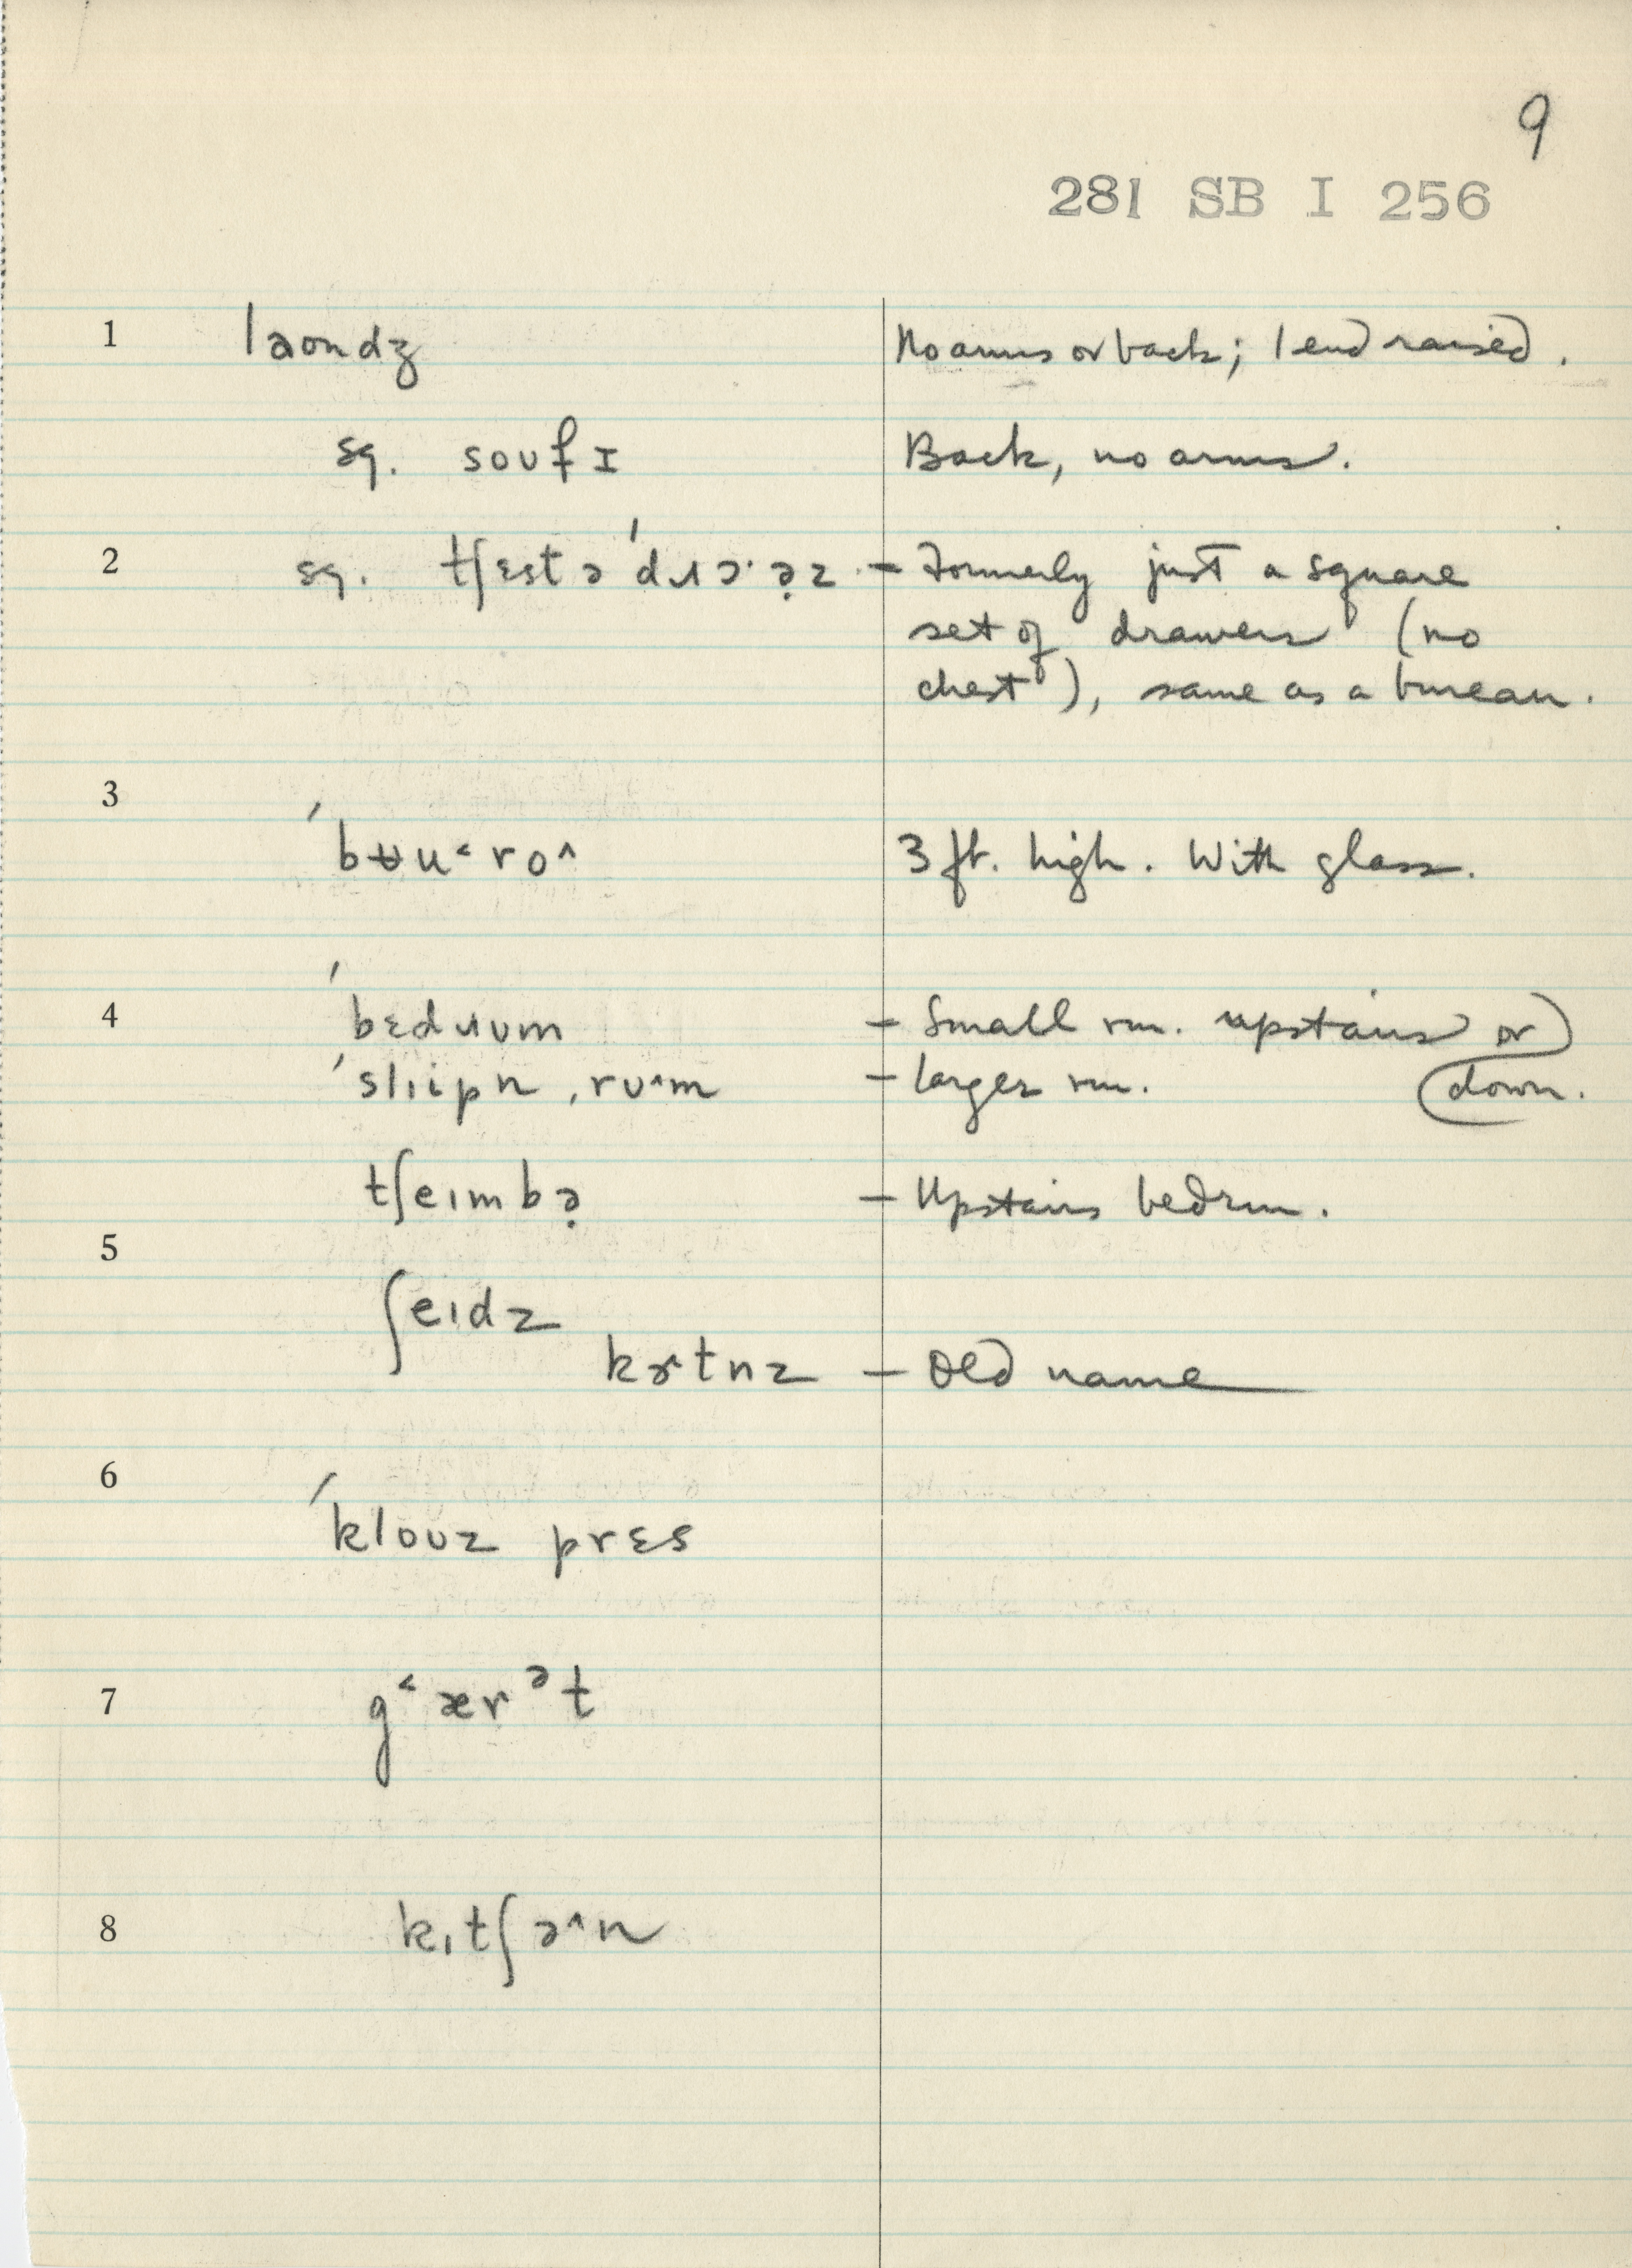 9
281 SB I 256
1 laondʒ No arms or back; 1 end raised.
sq. soufɪ Back, no arms.
2 sq. tʃɛst ə ˈdɹɔ·ə̣z - Formerly just a square
set of drawers (no
chest), same as a bureau.
3
ˈbʉu˂ro^ 3 ft. high. With glass.
4 ˈbɛdɹʊm - Small rm. upstairs or
down.
ˈslɪipn ˌrʊ^m - larger rm.
tʃeɪmbə̣ - Upstairs bedrm.
5
ʃeɪdz
kɚtnz - Old name
6
ˈkloʊz prɛs
7 g˂ærᵊt
8 kɪtʃə^n